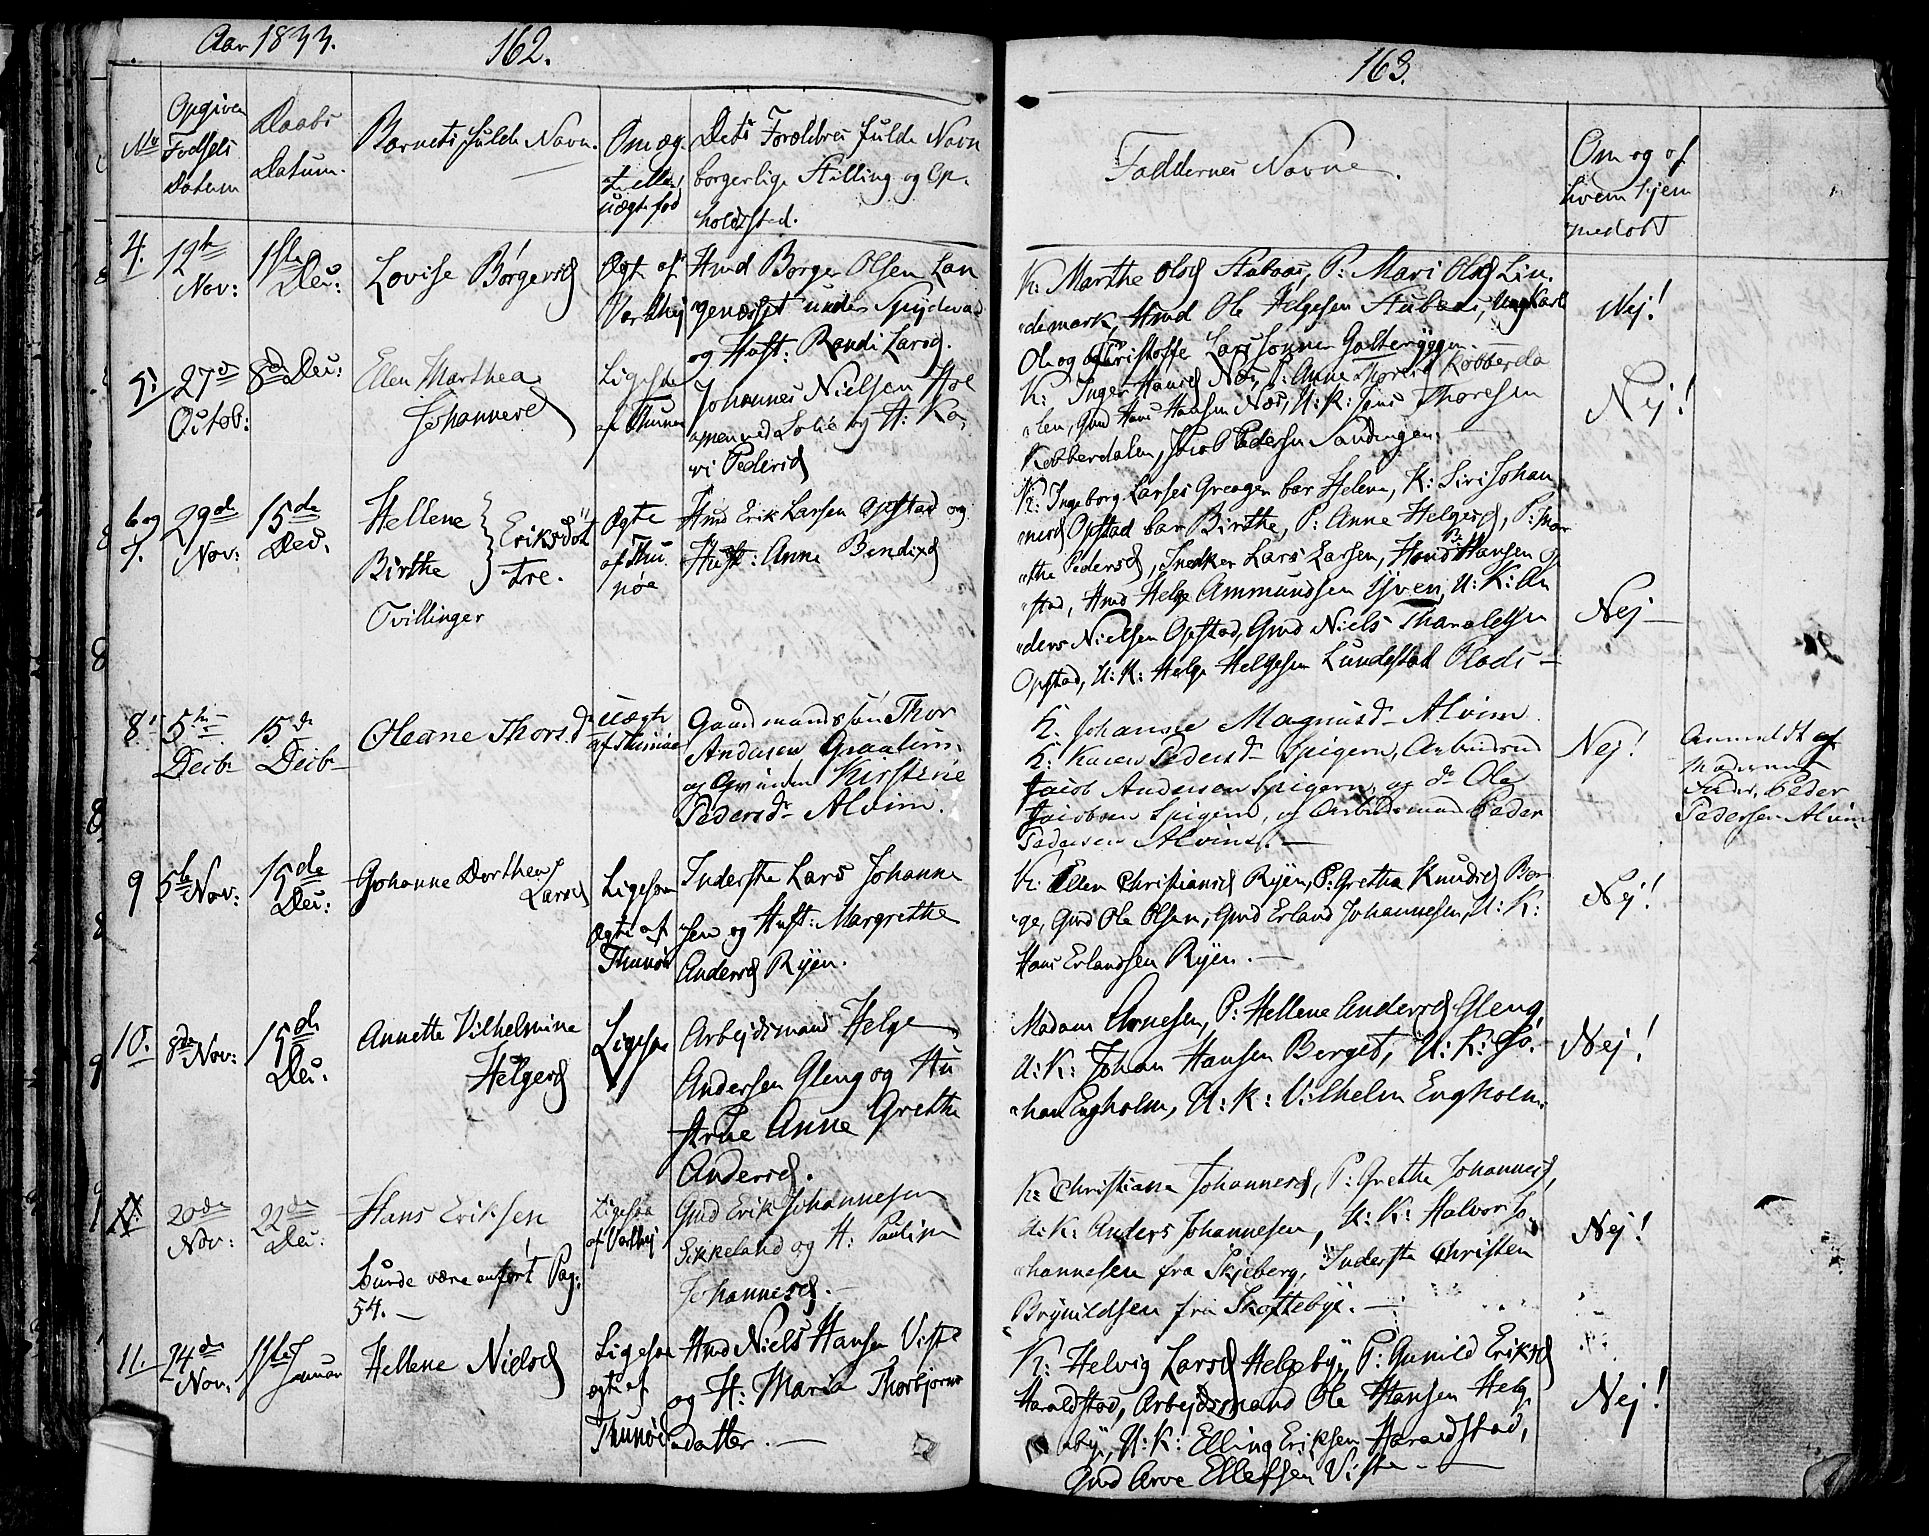 Aar 1833.
162.
No
Opgiven
Fødsels
Datum
Daabs
Datum.
Barnets fulde Navn.
Om æg-
te eller
uægte fød
Dets Forældres fulde Navn
borgerlige Stilling og Op-
holdssted.
4.
12te
Nov:
1ste
Dec:
Lovise Børgersd
Ægte af
Hmd Borger Olsen Lan
og Hust: Randi Larsd.
5.
27de
Octob:
8de Dec:
Ellen Marthea
Johannesd
Ligesaa
Johannes Nielsen Hol
og H: Ka
ri Pedersd
6 og
7.
29de
Nov:
15de
Dec.
Hellene
Birthe
Eriksdøt
tre.
Tvillinger
Ægte
af Thu
nøe
Hmd Erik Larsen Opstad og
Hust: Anne Bendixd
8.
5te
Decbr
15de
Decbr
Oleane Thorsdr
uægte
af Thunøe
Gaardmandssøn Thor
Andersen Graatum
og Qvinden Kirstine
Pedersdr Alvim.
9
5te Nov:
15de
Dec:
Johanne Dorthea
Larsd
Ligesaa
Ægte af
Thunøe
Inderste Lars Johanne
sen og Hust: Margrethe
Andersd Ryen.
10.
8de Nov:
15de
Dec.
Annette Vilhelmine
Helgesd
Ligesaa
Arbejdsmand Helge
Andersen Gleng og Hu
strue Anne Grethe
Andersd.
20de
Nov:
22de
Dec:
Hans Eriksen
burde være anført Pag:
54.
Ligesaa
af Vartej
Gmd Erik Johannesen
Sikkeland og H: Pauline
Johannesd.
11.
24de
Nov.
1ste
Januar
Hellene Nielsd
Ligesaa
ægte af
Thunøe
Hmd Niels Hansen Viste
og H: Maria Thorbjørns
datter.
163.
Faddernes Navne.
Om og af
hvem hjem
medøbt
K: Marthe Olsd Stubaas, P: Mari Olsd Lin
demark, Hmd Ole Helgesen Stubaas, Ungkarl
Ole og Christoffe Larssønner
Nej!
K: Inger Hansd Næs, P: Anne Thoresd Kobberda
len, Gmd Hans Hansen Næs, U: K: Jens Thoresen
Kobberdalen, Jacob Pedersen Sandengen.
Nej!
K: Ingeborg Larsd Grengen bar Helene, K: Siri Johan
nesd Opstad bar Birthe, P: Anne Helgesd, P: Mar
the Pedersd, Snedker Lars Larsen, Hmd Hansen Op
stad, Hmd Helge Ammundsen Yven, U: K: An
ders Nielsen Opstad, Gmd Niels Tharaldsen
Opstad, U: K: Helge Helgesen Lundestad
Nej
K. Johanne Magnusdr Alvim
K: Karen Pedersdr Spigern, Arbeidsmd
Jacob Andersen Spigern, og do Ole
Jacobsen Spigern, og Arbeidsmand Peder
Pedersen Alvim.
Nej!
Anmeldt af
Moderens
Fader, Peder
Pedersen Alvim
K: Ellen Christiansd Ryen, P: Grethe Knudsd Bor
ge, Gmd Ole Olsen, Gmd Erland Johannesen, U: K:
Hans Erlandsen Ryen.
Nej!
Madam Arnesen, P: Hellene Andersd Gleng,
U: K: Johan Hansen Berget, U: K: Jo
han Engholm, U: K: Vilhelm Engholm.
Nej!
K: Christiane Johannesd, P: Grethe Johannesd,
U: K: Anders Johannesen, U: K: Halvor Jo
hannesen fra Skjeberg, Inderste Christen
Brynildsen fra Skoftebye.
Nej!
K: Helvig Larsd Helgebye, P: Gunild Eriksd
Haraldstad, Arbejdsmand Ole Hansen Helg
bye, U: K: Elling Eriksen Haraldstad,
Gmd Arve Ellefsen Viste.
Nej!